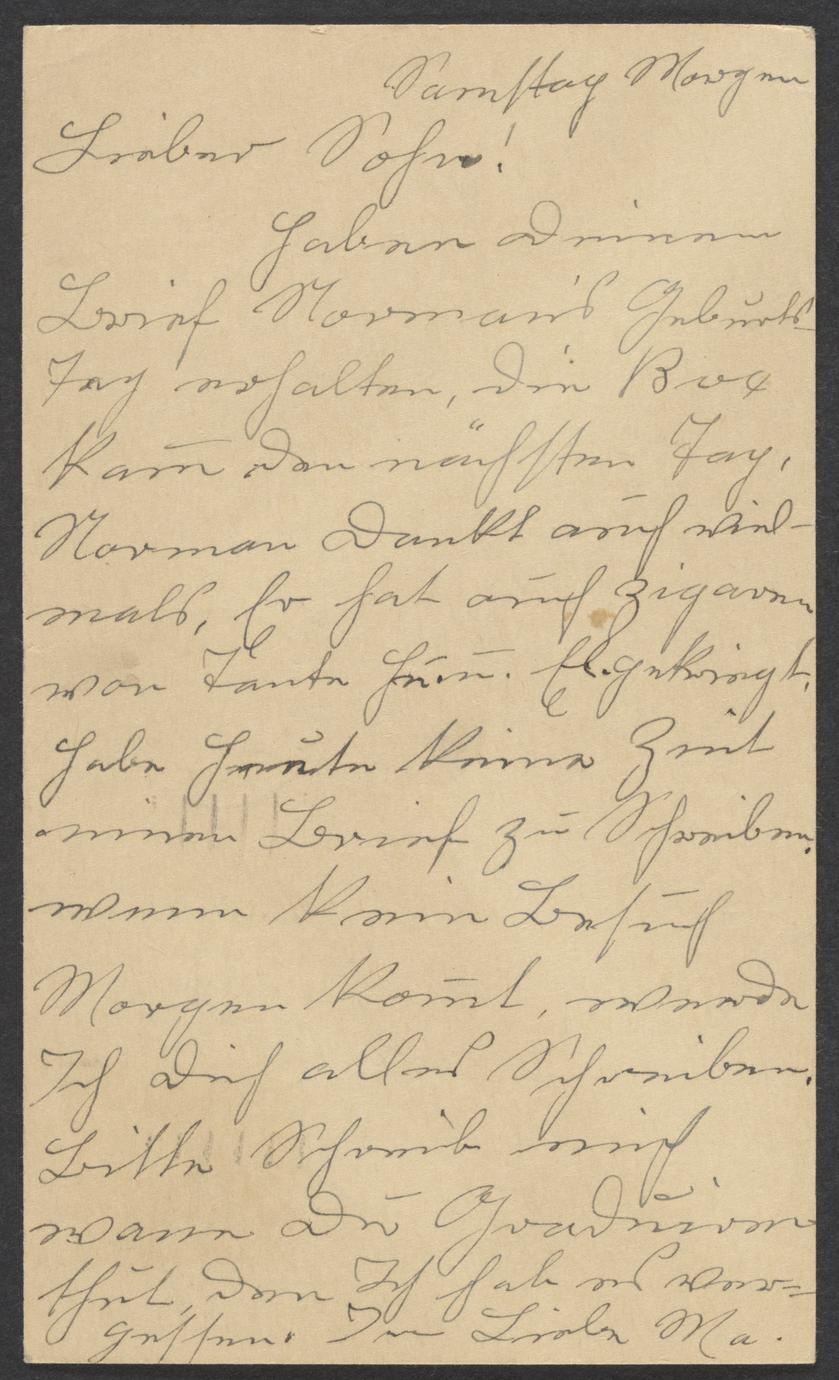 Samstag Morgen
Lieber Sohn!
Haben Deinen
Brief Norman's Geburts-
Tag erhalten, die Box
kam̄ den nächsten Tag,
Norman Dankt auch viel-
mals, Er hat auch Zigaren
von Tante gekriegt.
Habe Heute keine Zeit
einen Brief zu Schreiben.
wenn kein Besuch
Morgen kom̄t, werde
Ich Dich alles Schreiben.
Bitte Schreib mich
wann Du Graduiren
thut, den Ich hab es ver=
gessen. In Liebe Ma.